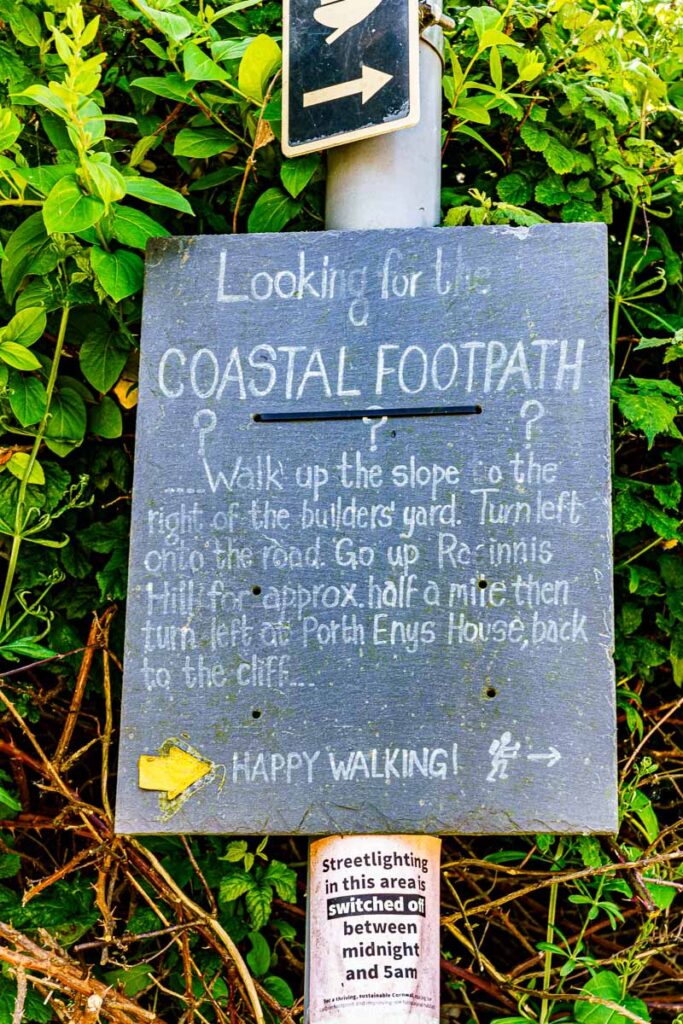 Looking for the
COASTAL FOOTPATH
? ? ?
....Walk up the slope to the
right of the builders' yard. Turn left
onto the road. Go up Raginnis
Hill for approx. half a mile then
turn left at Porth Enys House, back
to the cliff....
HAPPY WALKING!
Streetlighting
in this area is
switched off
between
midnight
and 5am
for a thriving, sustainable Cornwall